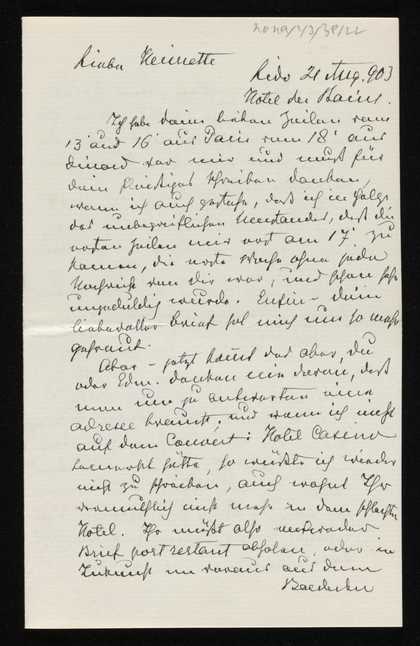 Liebe Henriette
Lido 21 Aug. 903
Hotel des Bains.
Ich habe deine lieben Zeilen vom
13 und 16 aus Paris vom 18 aus
Dinard vor mir und muß für
dein fleißiges Schreiben danken,
wenn ich auch gestehe, daß ich in Folge
des unbegreiflichen Umstandes, daß die
ersten Zeilen mir erst am 17 zu
kamen, die erste Woche ohne jede
Nachricht von dir war, und schon sehr
ungeduldig wurde. Enfin – dein
liebevoller Brief hat mich um so mehr
gefreut.
Aber – jetzt kommt das aber, du
oder Edm. denken nie daran, daß
man um zu antworten eine
Adresse braucht, und wenn ich nicht
auf dem Couvert: Hotel Casino
bemerkt hätte, so wüßte ich wieder
nicht zu schreiben, auch wohnt Ihr
vermuthlich nicht mehr in dem schlechten
Hotel. Ihr müßt also entweder
Brief post restant abholen, oder in
Zukunft im voraus aus dem
Baedeker